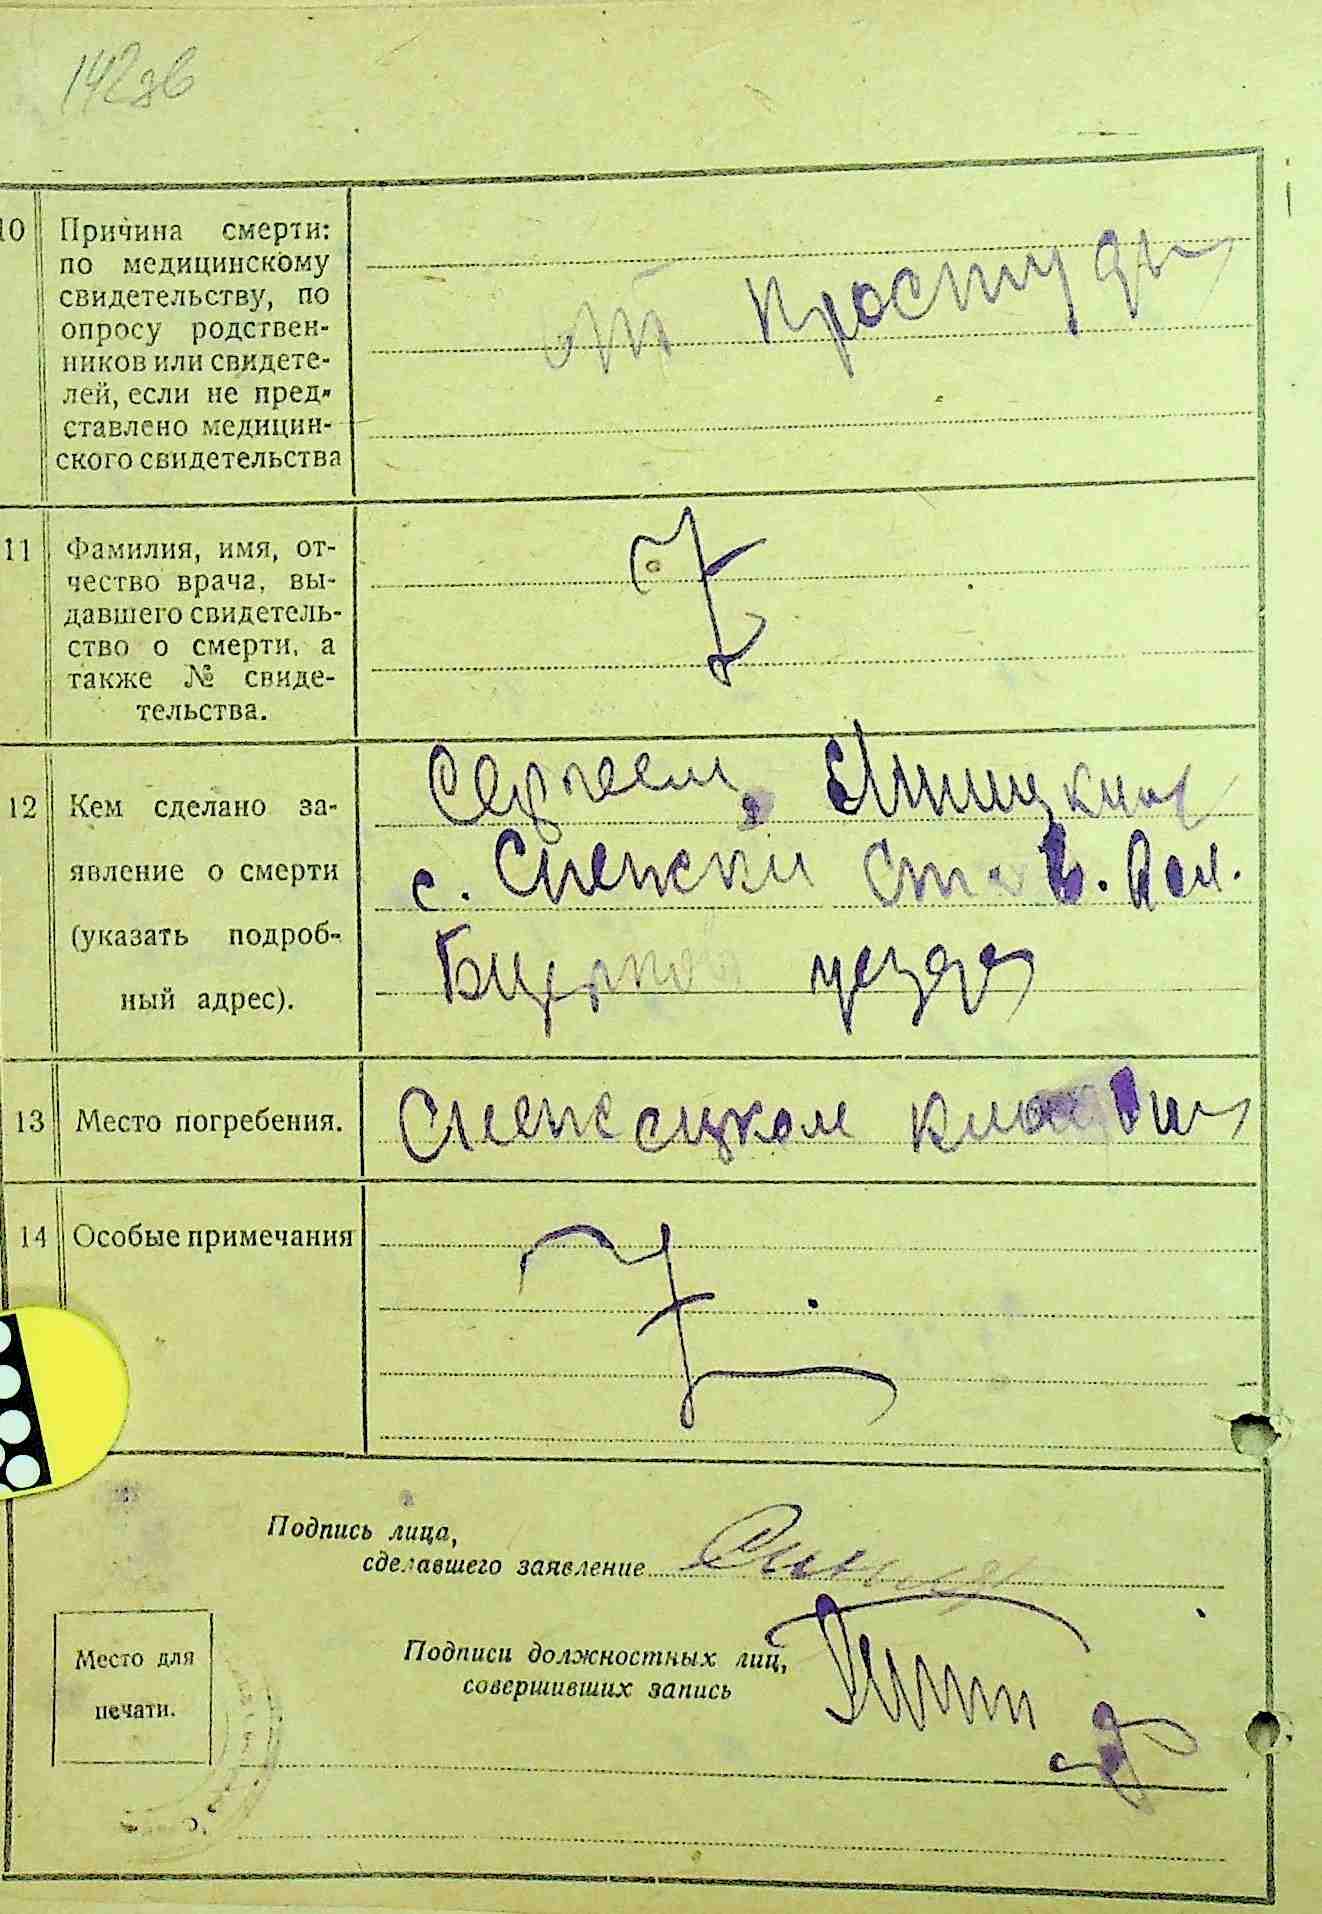 142 об
10 Причина смерти:
по медицинскому
свидетельству, по
опросу родствен-
ников или свидете-
лей, если не пред-
ставлено медицин-
ского свидетельства
от простуды
11 Фамилия, имя, от-
чество врача, вы-
давшего свидетель-
ство о смерти, а
также № свиде-
тельства.
12 Кем сделано за-
явление о смерти
(указать подроб-
ный адрес).
Сергеем
с. Слепски Став. вол.
уезда
13 Место погребения.
кладбищ
14 Особые примечания
Подпись лица,
сделавшего заявление
Подписи должностных лиц,
совершивших запись
Место для
печати.